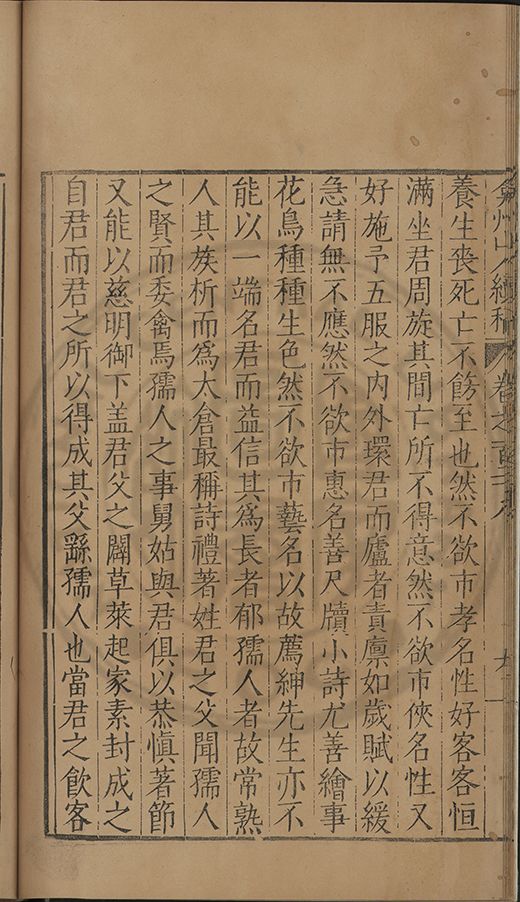 弇州山人續稿 卷之一百二十八 十二
養生喪死亡不飭至也然不欲市孝名性好客客恒
滿坐君周旋其間亡所不得意然不欲市俠名性又
好施予五服之内外環君而廬者責廪如歲賦以緩
急請無不應然不欲市惠名善尺牘小詩尤善繪事
花鳥種種生色然不欲市藝名以故薦紳先生亦不
能以一端名君而益信其為長者郁孺人者故常熟
人其族析而為太倉最稱詩禮著姓君之父聞孺人
之賢而委禽焉孺人之事舅姑與君俱以恭慎著節
又能以慈明御下盖君父之闢草萊起家素封成之
自君而君之所以得成其父繇孺人也當君之飲客